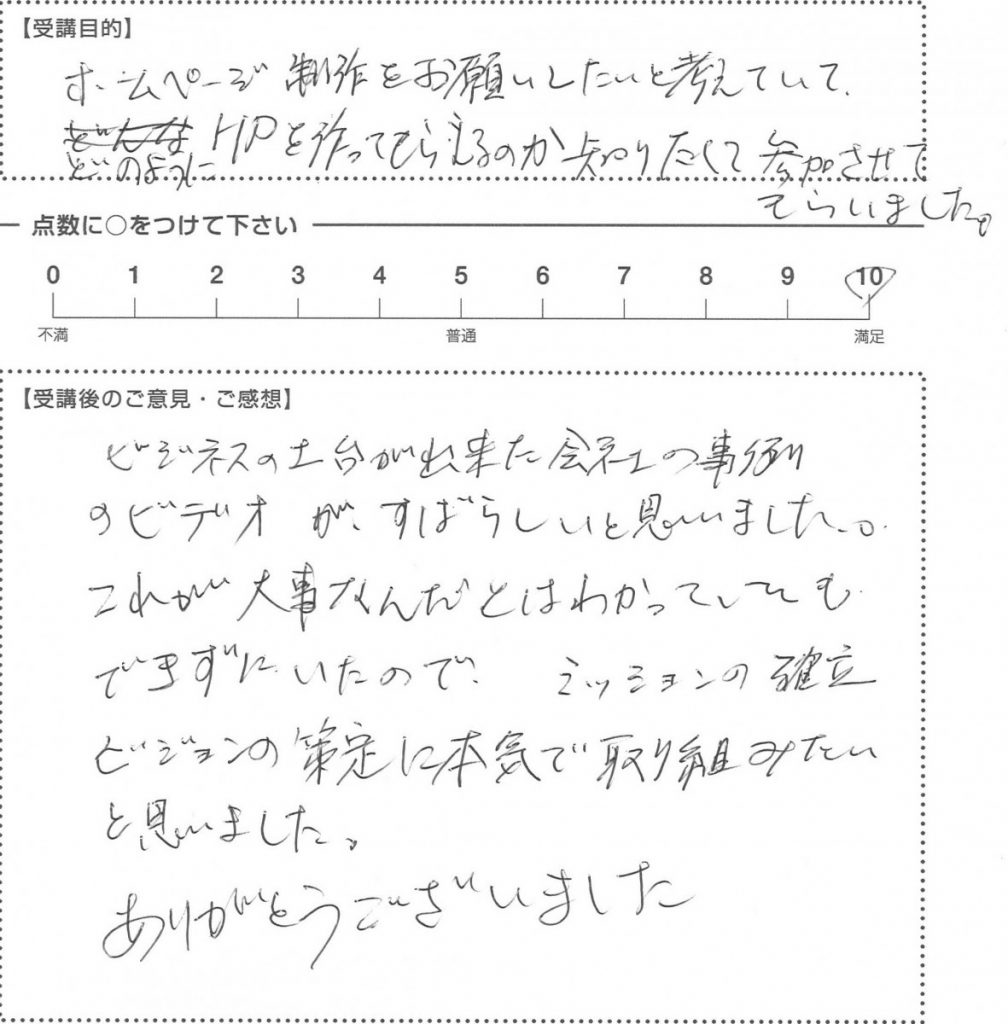 【受講目的】
ホームページ 制作をお願いしたいと考えていて、
どんな HPを作ってもらえるのか 知りたくて 参加させて
どのように
もらいました。
点数に○をつけて下さい
0 1 2 3 4 5 6 7 8 9 10
不満 普通 満足
【受講後のご意見・ご感想】
ビジネスの土台が出来た会社の事例
のビデオ が、すばらしいと思いました。
これが大事なんだとはわかっていても
できずにいたので、 ミッションの確立
ビジョンの策定に本気で取り組みたい
と思いました。
ありがとうございました